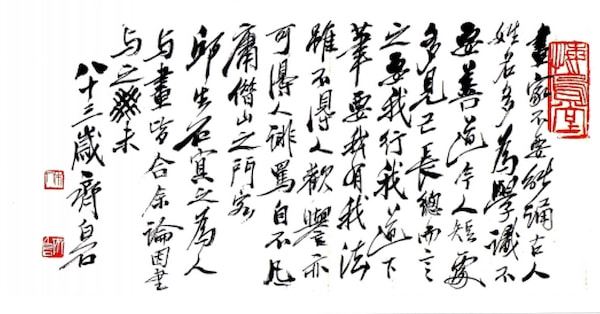 畫家不要能誦古人
姓名多為學識不
要善道今人短處
多見己長總而言
之要我行我道下
筆要我有我法
雖不得人歡譽亦
可得人誹罵自不凡
庸借山之門客
邱生石冥之為人
与畫皆合余論因書
与之 未
八十三歲齊白石